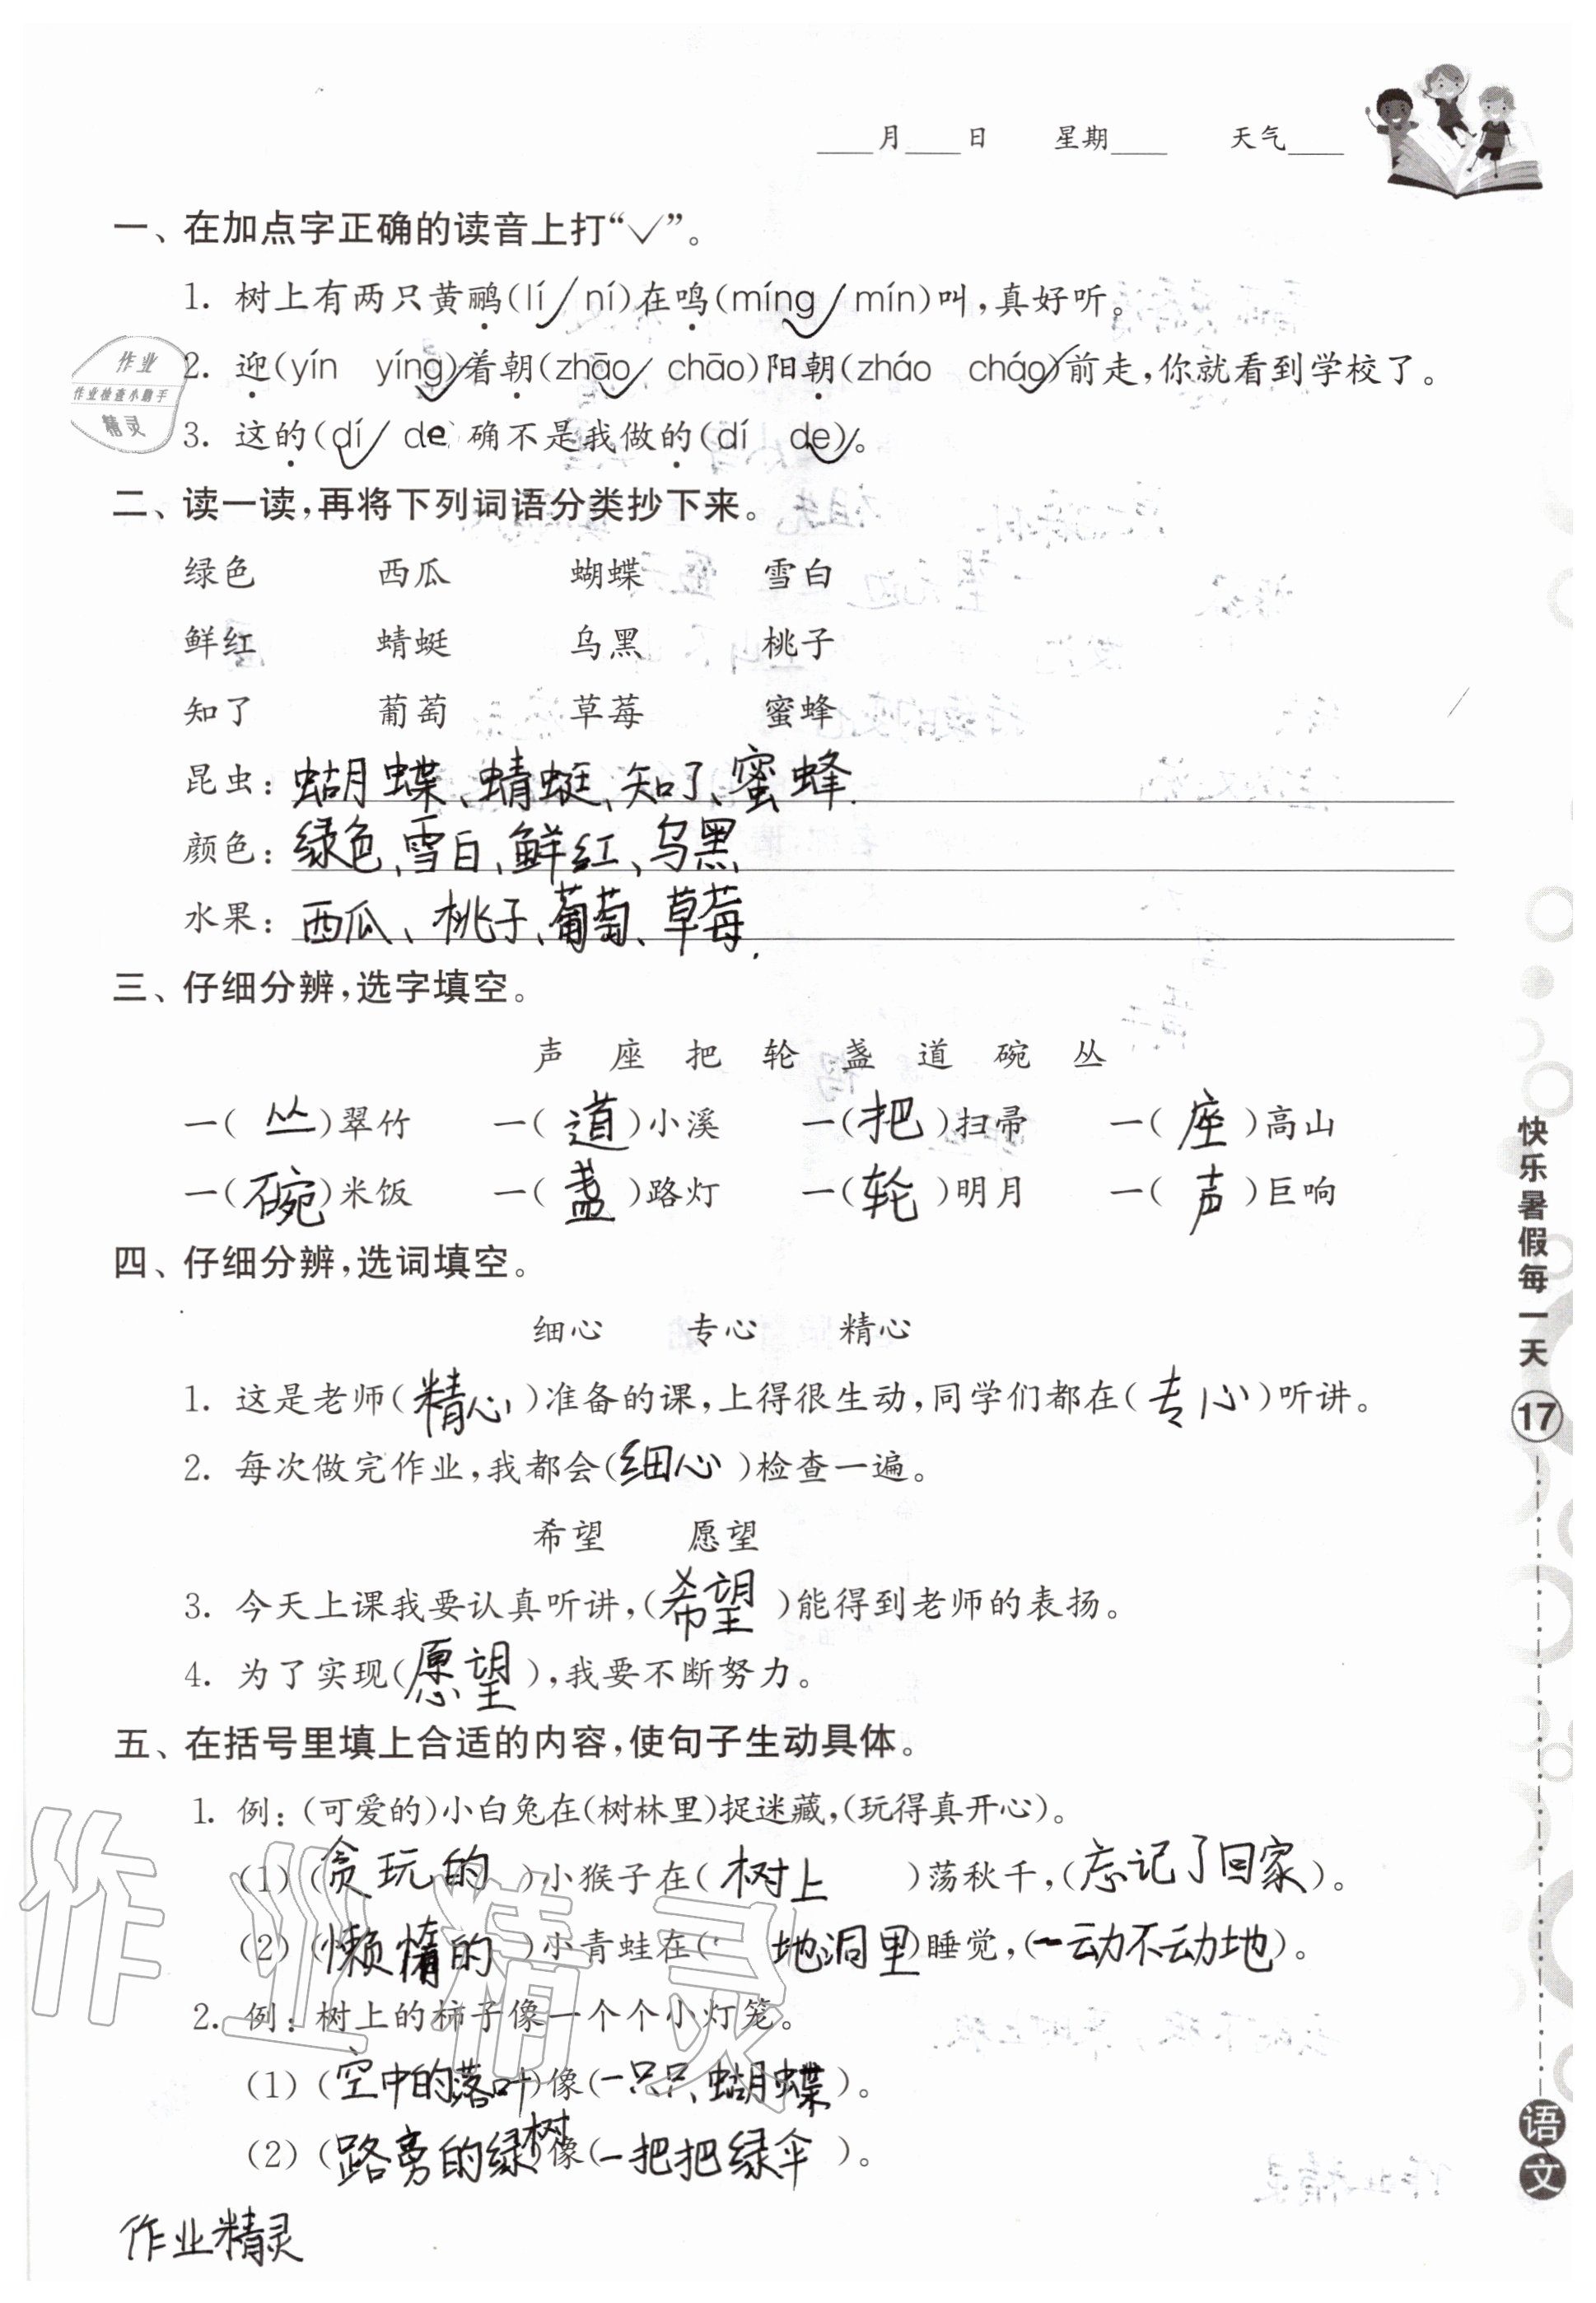 ____月____日 星期____ 天气____
一、在加点字正确的读音上打“✓”。
1. 树上有两只黄鹂(lí✓ ní)在鸣(míng✓ mín)叫,真好听。
2. 迎(yín yíng✓)着朝(zhāo✓ chāo)阳朝(zháo cháo✓)前走,你就看到学校了。
3. 这的(dí✓ de)确不是我做的(dí de✓)。
作业
作业检查小助手
精灵
二、读一读,再将下列词语分类抄下来。
绿色 西瓜 蝴蝶 雪白
鲜红 蜻蜓 乌黑 桃子
知了 葡萄 草莓 蜜蜂
昆虫:蝴蝶、蜻蜓、知了、蜜蜂.
颜色:绿色、雪白、鲜红、乌黑
水果:西瓜、桃子、葡萄、草莓.
三、仔细分辨,选字填空。
声 座 把 轮 盏 道 碗 丛
一(丛)翠竹 一(道)小溪 一(把)扫帚 一(座)高山
一(碗)米饭 一(盏)路灯 一(轮)明月 一(声)巨响
四、仔细分辨,选词填空。
细心 专心 精心
1. 这是老师(精心)准备的课,上得很生动,同学们都在(专心)听讲。
2. 每次做完作业,我都会(细心)检查一遍。
希望 愿望
3. 今天上课我要认真听讲,(希望)能得到老师的表扬。
4. 为了实现(愿望),我要不断努力。
五、在括号里填上合适的内容,使句子生动具体。
1. 例:(可爱的)小白兔在(树林里)捉迷藏,(玩得真开心)。
(1) (贪玩的)小猴子在(树上)荡秋千,(忘记了回家)。
(2) (懒惰的)小青蛙在(地洞里)睡觉,(一动不动地)。
2. 例:树上的柿子像一个个小灯笼。
(1) (空中的落叶)像(一只只蝴蝶)。
(2) (路旁的绿树)像(一把把绿伞)。
作业精灵
作业精灵
快乐暑假每一天
17
语文